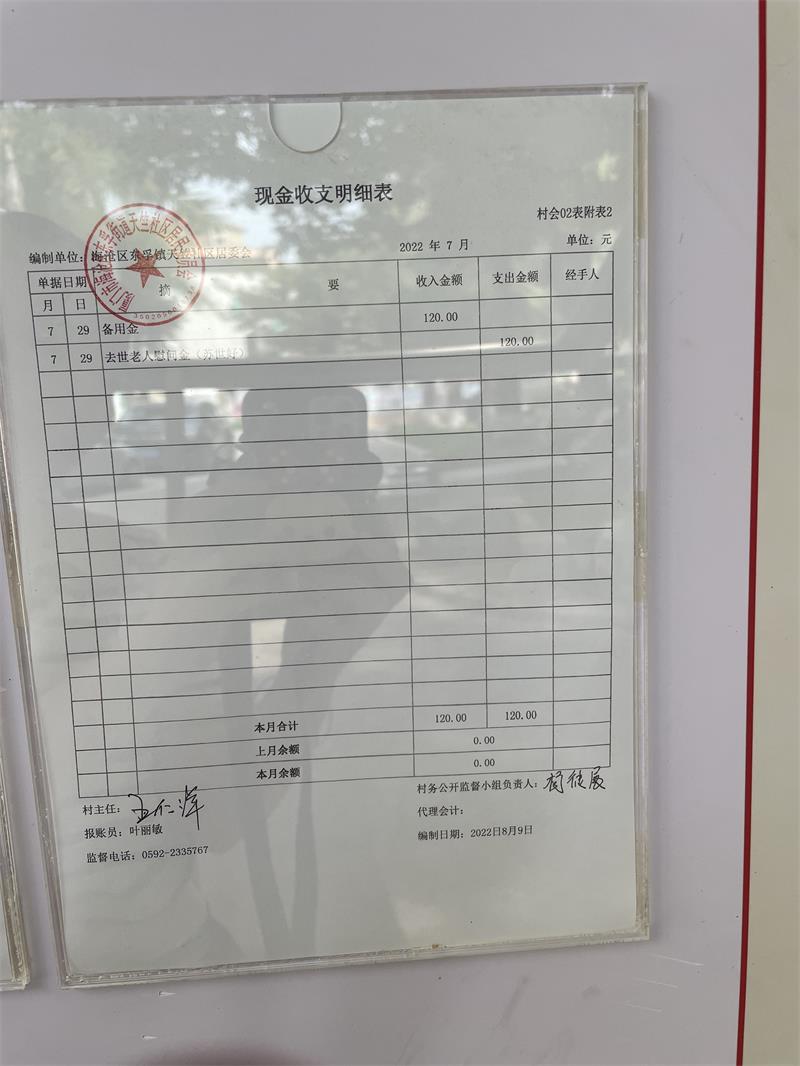 现金收支明细表
村会02表附表2
编制单位：海沧区东孚镇天竺山区居委会
2022 年 7 月
单位：元
单据日期 摘 要 收入金额 支出金额 经手人
月 日
7 29 备用金 120.00
7 29 去世老人慰问金（苏世好） 120.00
本月合计 120.00 120.00
上月余额 0.00
本月余额 0.00
村主任：
村务公开监督小组负责人：
报账员：叶丽敏
代理会计：
监督电话：0592-2335767
编制日期：2022日8月9日